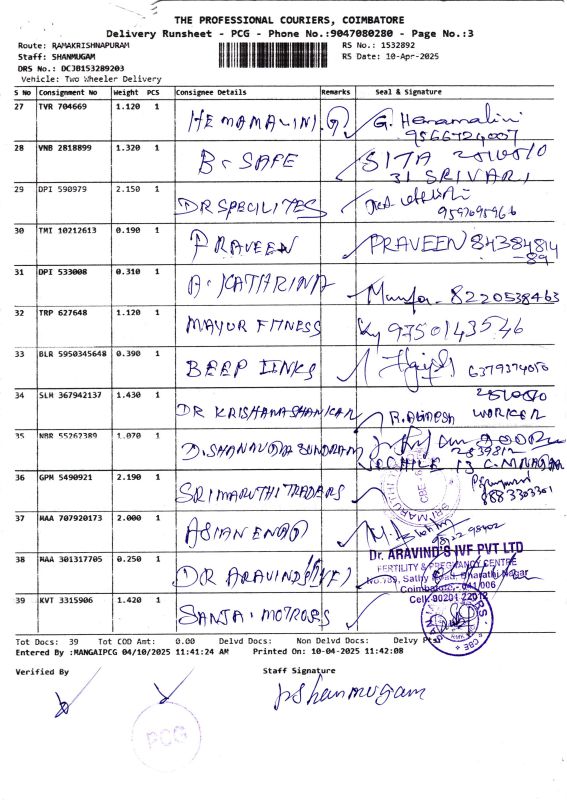 THE PROFESSIONAL COURIERS, COIMBATORE
Delivery Runsheet - PCG - Phone No.:9047080280 - Page No.:3
Route: RAMAKRISHNAPURAM
RS No.: 1532892
Staff: SHANMUGAM
RS Date: 10-Apr-2025
DRS No.: DCJB153289203
Vehicle: Two Wheeler Delivery
S No Consignment No Weight PCS Consignee Details Remarks Seal & Signature
27 TVR 704669 1.120 1 HEMAMALINI.G G. Hemamalini
9566724007
28 VNB 2818899 1.320 1 B-SAFE SITA
31 SRIVARI
29 DPI 590979 2.150 1 DR SPECILITES
9597695966
30 TMI 10212613 0.190 1 PRAVEEN PRAVEEN 84384814
-89
31 DPI 533008 0.310 1 A. KATHRINA 8220538463
32 TRP 627648 1.120 1 MAYUR FITNESS 9750143546
33 BLR 5950345648 0.390 1 BEEP INKS 6379374050
34 SLM 367942137 1.430 1 DR KRISHANASHANKAR WORKER
35 NBR 55262389 1.070 1
36 GPM 5490921 2.190 1 SRI MARUTHI TRADERS
8883303301
37 MAA 707920173 2.000 1 ASIAN
38 MAA 301317705 0.250 1 DR ARAVIND (IVF) Dr. ARAVIND'S IVF PVT LTD
FERTILITY & PREGNANCY CENTRE
No.789, Sathy Road, Bharathi Nagar
Coimbatore - 641 006
Cell: 90201 22012
39 KVT 3315906 1.420 1 SANJA. MOTRORS
Tot Docs: 39 Tot COD Amt: 0.00 Delvd Docs: Non Delvd Docs: Delvy
Entered By :MANGAIPCG 04/10/2025 11:41:24 AM Printed On: 10-04-2025 11:42:08
Verified By Staff Signature
P Shanmugam
PCG